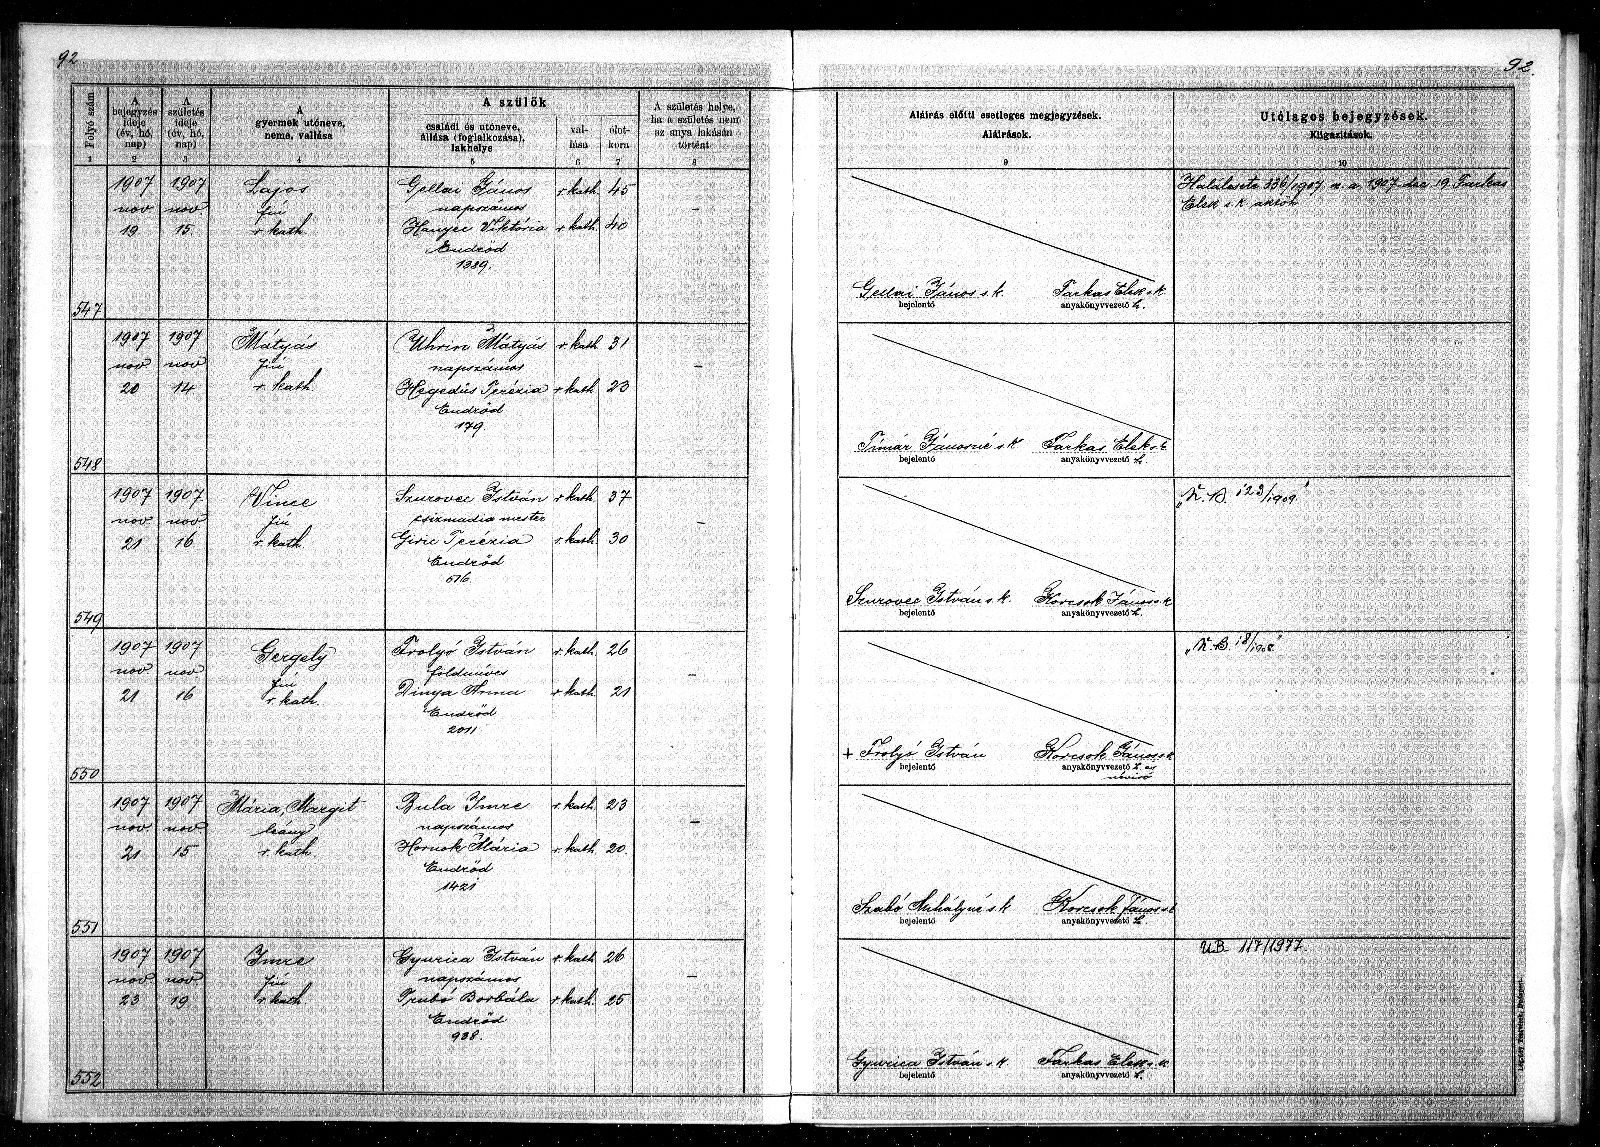 92
92.
Folyó szám
A bejegyzés ideje (év, hó, nap)
A születés ideje (év, hó, nap)
A gyermek utóneve, neme, vallása
A szülők
családi és utóneve, állása (foglalkozása), lakhelye
vallása
életkora
A születés helye, ha a születés nem az anya lakásán történt
Aláírás előtti esetleges megjegyzések.
Aláírások.
Utólagos bejegyzések.
Kiigazítások.
1 2 3 4 5 6 7 8 9 10
547
1907 nov 19
1907 nov 15
Lajos
fiú
r. kath
Gellai János r. kath 45
napszámos
Hanyec Viktória r. kath. 40
Endrőd
1389.
–
Gellai János s. k.
bejelentő
Farkas Elek s k
anyakönyvvezető h.
Haláleset 336/1907 a. a. 1907 dec 19. Farkas
Elek s. k. aktóh
548
1907 nov 20
1907 nov 14
Mátyás
fiú
r. kath
Uhrin Mátyás r. kath 31
napszámos
Hegedüs Terézia r. kath 23
Endrőd
179.
–
Tímár Jánosné s. k
bejelentő
Farkas Elek s. k
anyakönyvvezető h.
549
1907 nov 21
1907 nov 16
Vince
fiú
r. kath
Szurovec István r. kath 37
csizmadia mester
Giric Terézia r. kath. 30
Endrőd
516.
–
Szurovec István s. k.
bejelentő
Korcsok János s. k
anyakönyvvezető h.
„N. B. 123/1909."
550
1907 nov 21
1907 nov 16
Gergely
fiú
r. kath.
Frolyó István r. kath. 26
földmüves
Dinya Anna r. kath. 21
Endrőd
2011
–
+ Frolyó István
bejelentő
Korcsok János s. k
anyakönyvvezető h. és
névíró
„N. B. 18/1908."
551
1907 nov 21
1907 nov 15
Mária, Margit
leány
r. kath.
Bula Imre r. kath. 23
napszámos
Hornok Mária r. kath. 20.
Endrőd
1421
–
Szabó Mihályné s. k
bejelentő
Korcsok János s. k
anyakönyvvezető h.
552
1907 nov 23
1907 nov 19
Imre
fiú
r. kath
Gyurica István r. kath. 26
napszámos
Trubó Borbála r. kath. 25
Endrőd
938.
–
Gyurica István s. k.
bejelentő
Farkas Elek s. k
anyakönyvvezető h.
U.B. 117/1977.